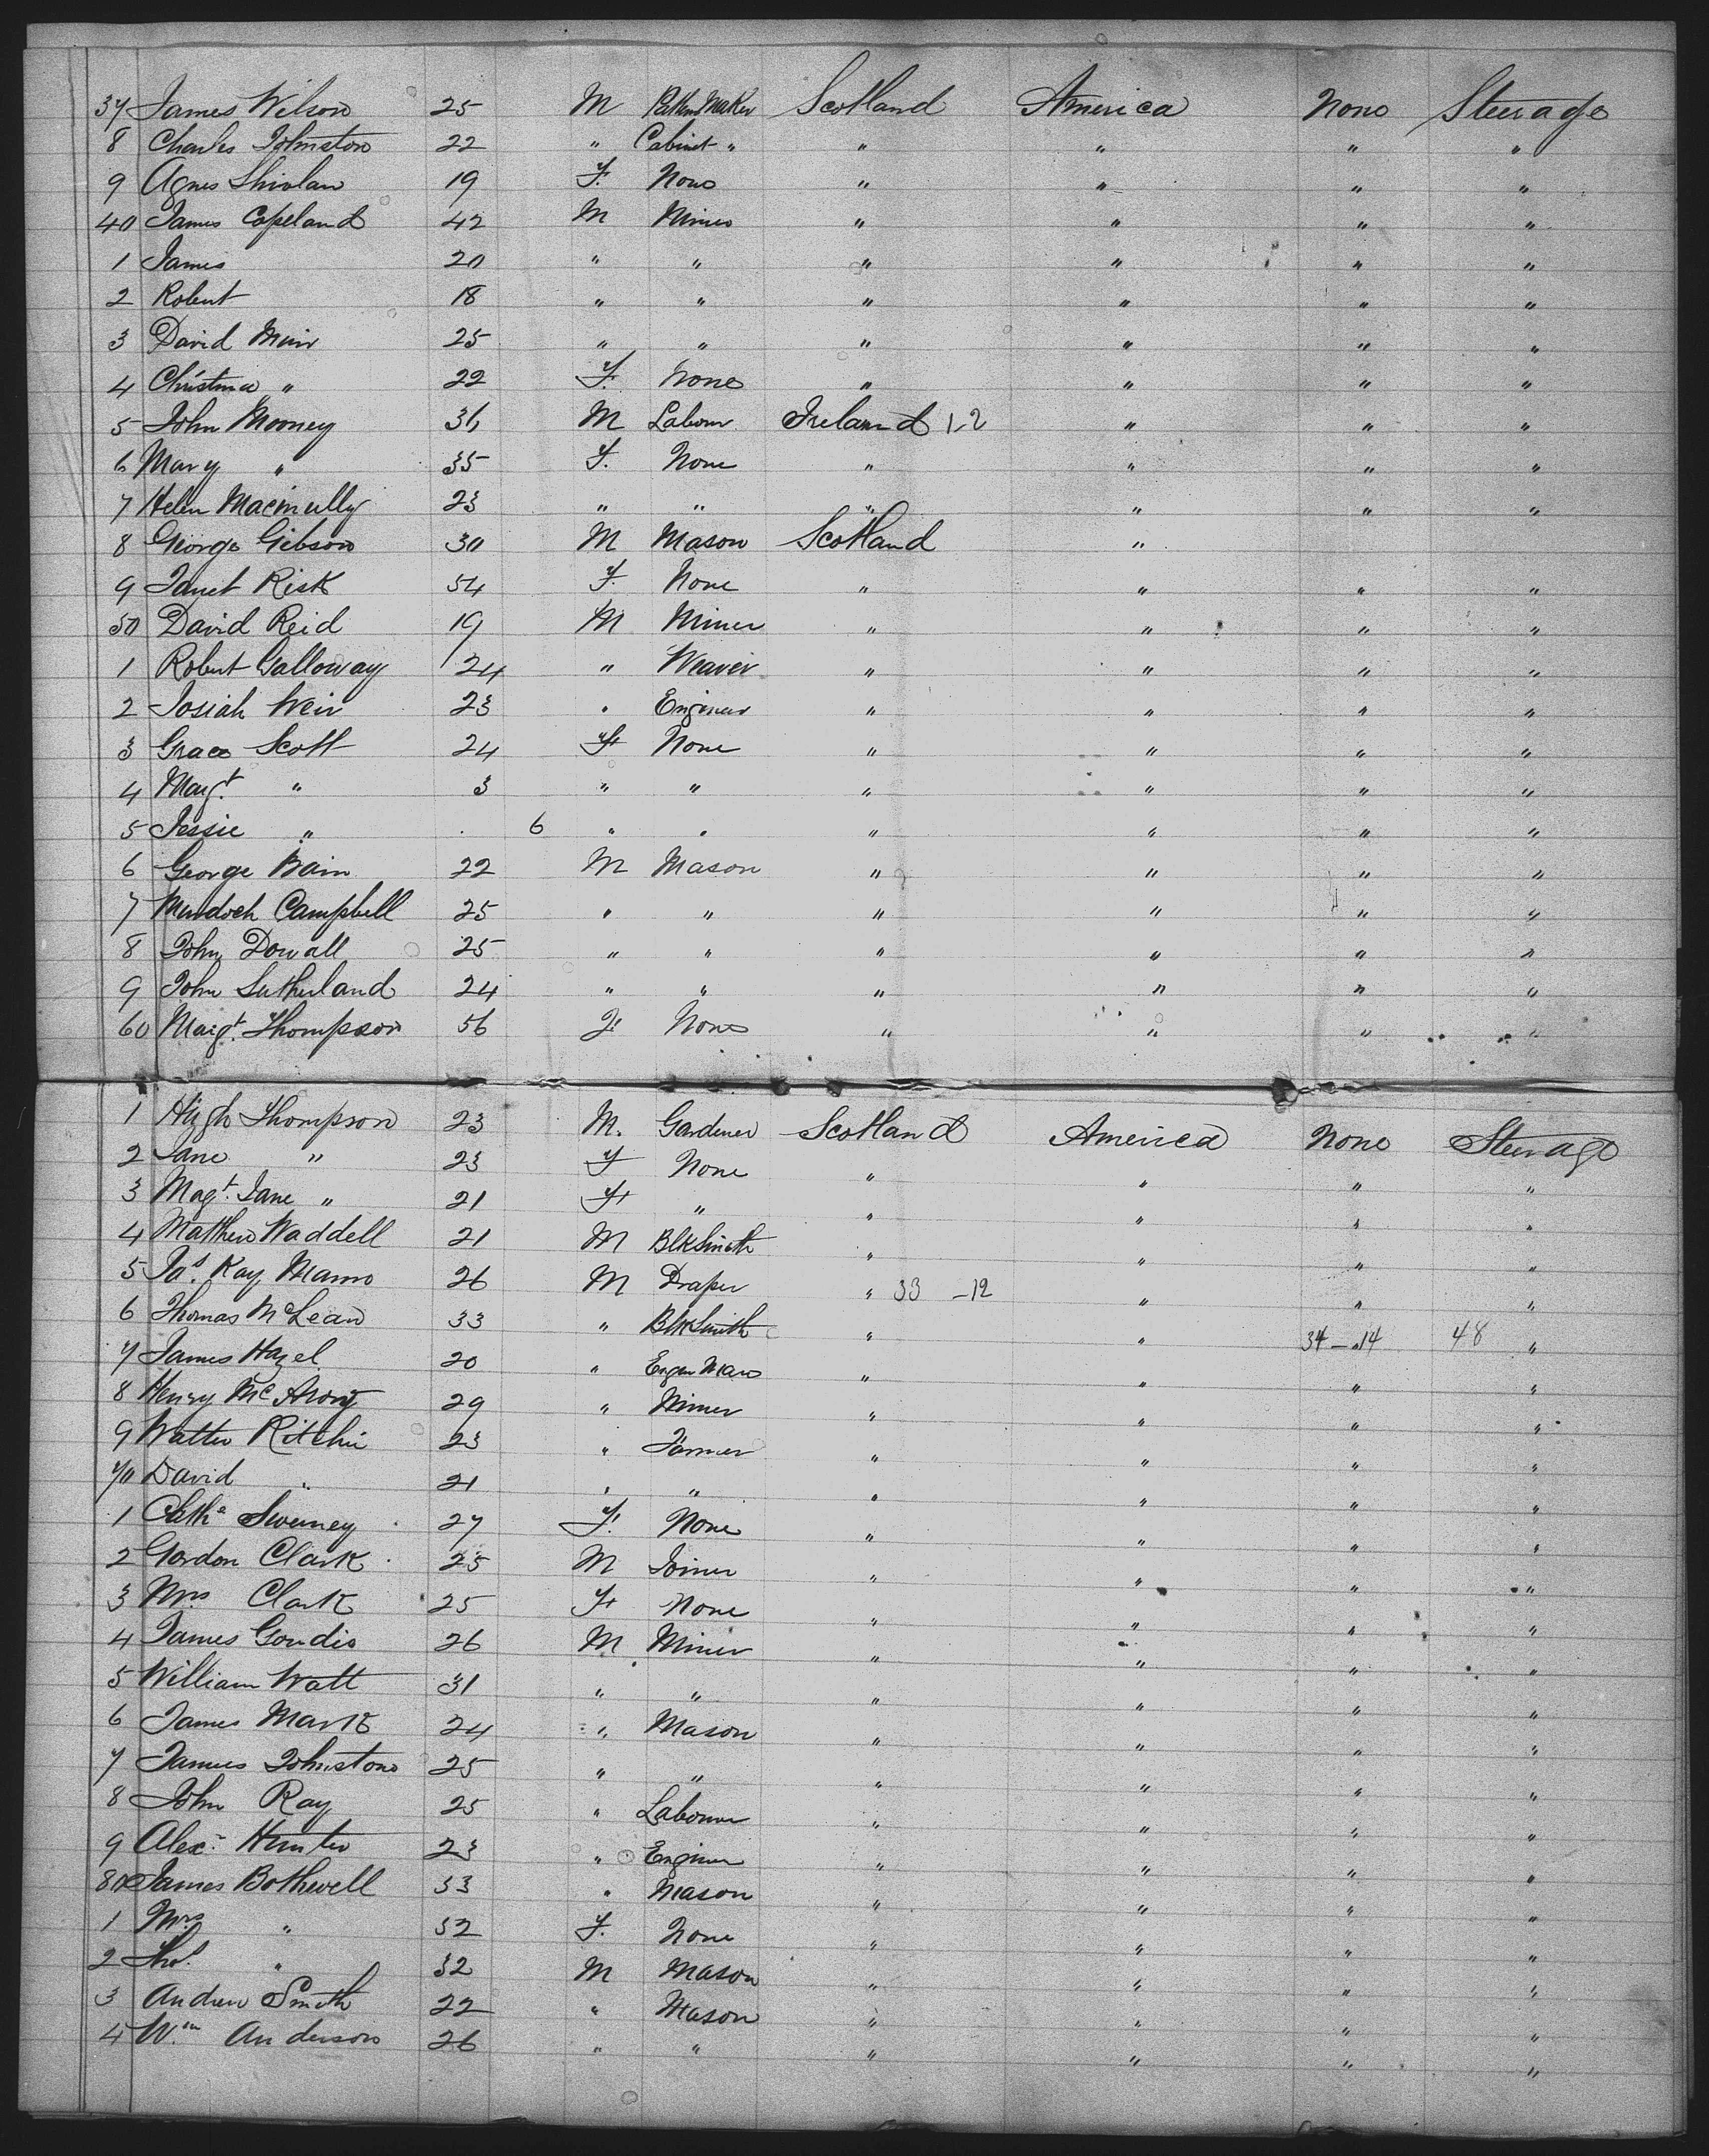 37 James Wilson 25 M Pattern Maker Scotland America None Steerage
8 Charles Johnston 22 " Cabinet " " " " "
9 Agnes 19 F. None " " " "
40 James Copeland 42 M Miner " " " "
1 James 20 " " " " " "
2 Robert 18 " " " " " "
3 David Muir 25 " " " " " "
4 Christina " 22 F. None " " " "
5 John Mooney 36 M Labour Ireland 1-2 " " "
6 Mary " 35 F. None " " " "
7 Helen Macinully 23 " " " " " "
8 George Gibson 30 M Mason Scotland "
9 Janet Risk 54 F. None " " " "
50 David Reid 19 M Miner " " " "
1 Robert Galloway 24 " Weaver " " " "
2 Josiah Weir 23 " Engineer " " " "
3 Grace Scott 24 F None " " " "
4 Margt. " 3 " " " " " "
5 Jessie " 6 " " " " " "
6 George Bain 22 M Mason " " " "
7 Murdoch Campbell 25 " " " " " "
8 John Dowall 25 " " " " " "
9 John Sutherland 24 " " " " " "
60 Margt. Thompson 56 F None " " " "
1 Hugh Thompson 23 M. Gardener Scotland America None Steerage
2 Jane " 23 F None " " " "
3 Magt. Jane " 21 F " " " " "
4 Matthew Waddell 21 M BlkSmith " " " "
5 Jas. Kay Mann 26 M Draper " 33 -12 " " "
6 Thomas McLean 33 " BlkSmith " " 34-14 48 "
7 James Hazel 20 " Engin Man " " " "
8 Henry Mc 29 " Miner " " " "
9 Walter Ritchie 23 " Farmer " " " "
70 David " 21 " " " " " "
1 Cathe Sweeney 27 F. None " " " "
2 Gordon Clark 25 M Joiner " " " "
3 Mrs Clark 25 F None " " " "
4 James Goudie 26 M Miner " " " "
5 William Watt 31 " " " " " "
6 James Mark 24 " Mason " " " "
7 James Johnstone 25 " " " " " "
8 John Ray 25 " Labourer " " " "
9 Alexr Hunter 23 " Engineer " " " "
80 James Bothwell 33 " Mason " " " "
1 Mrs " 32 F. None " " " "
2 Thos. " 32 M Mason " " " "
3 Andrew Smith 22 " Mason " " " "
4 Wm Anderson 26 " " " " " "